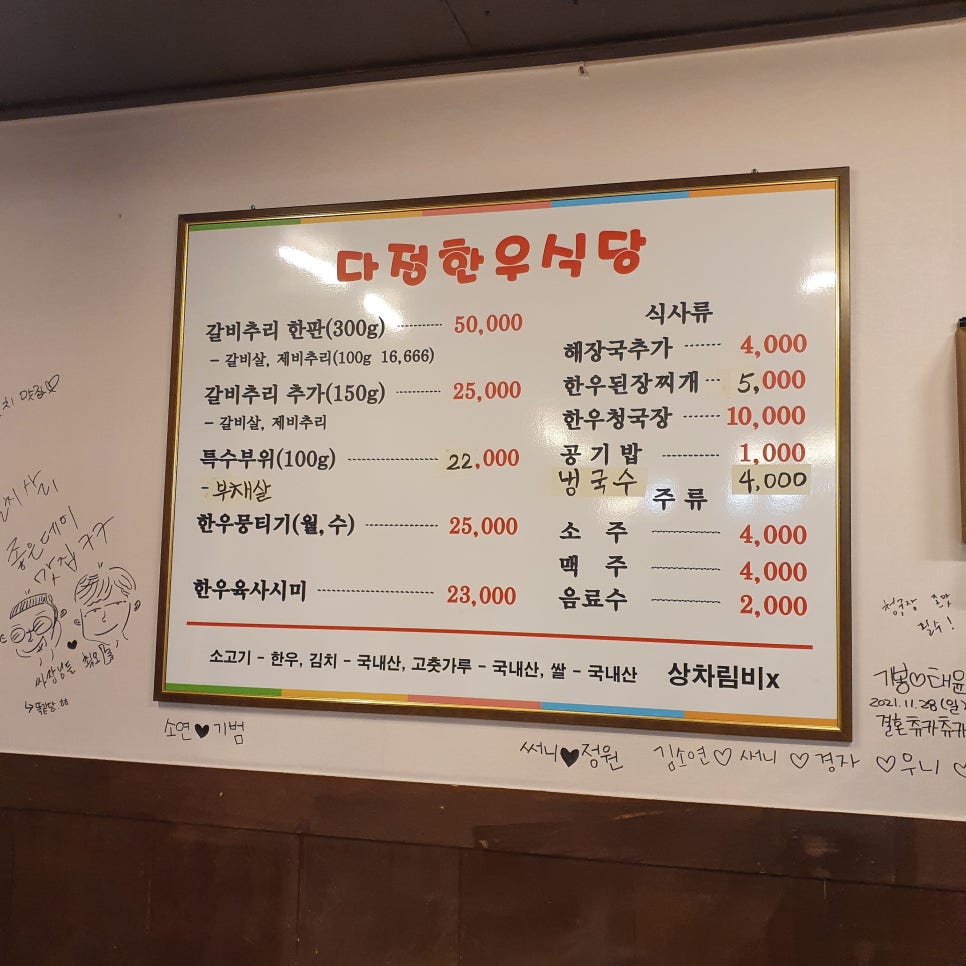 다정한우식당
갈비추리 한판(300g) 50,000
- 갈비살, 제비추리(100g 16,666)
갈비추리 추가(150g) 25,000
- 갈비살, 제비추리
특수부위(100g) 22,000
- 부채살
한우뭉티기(월,수) 25,000
한우육사시미 23,000
식사류
해장국추가 4,000
한우된장찌개 5,000
한우청국장 10,000
공기밥 1,000
냉국수 4,000
주류
소주 4,000
맥주 4,000
음료수 2,000
소고기 - 한우, 김치 - 국내산, 고춧가루 - 국내산, 쌀 - 국내산 상차림비x
맛집♡
좋은데이
맛집 ㅋㅋ
소연♥기범
써니♥정원
김소연♡새니♡경자♡우니♡
청국장 존맛
필수!
기봉♡태윤
2021.11.28(일)
결혼츄카츄카